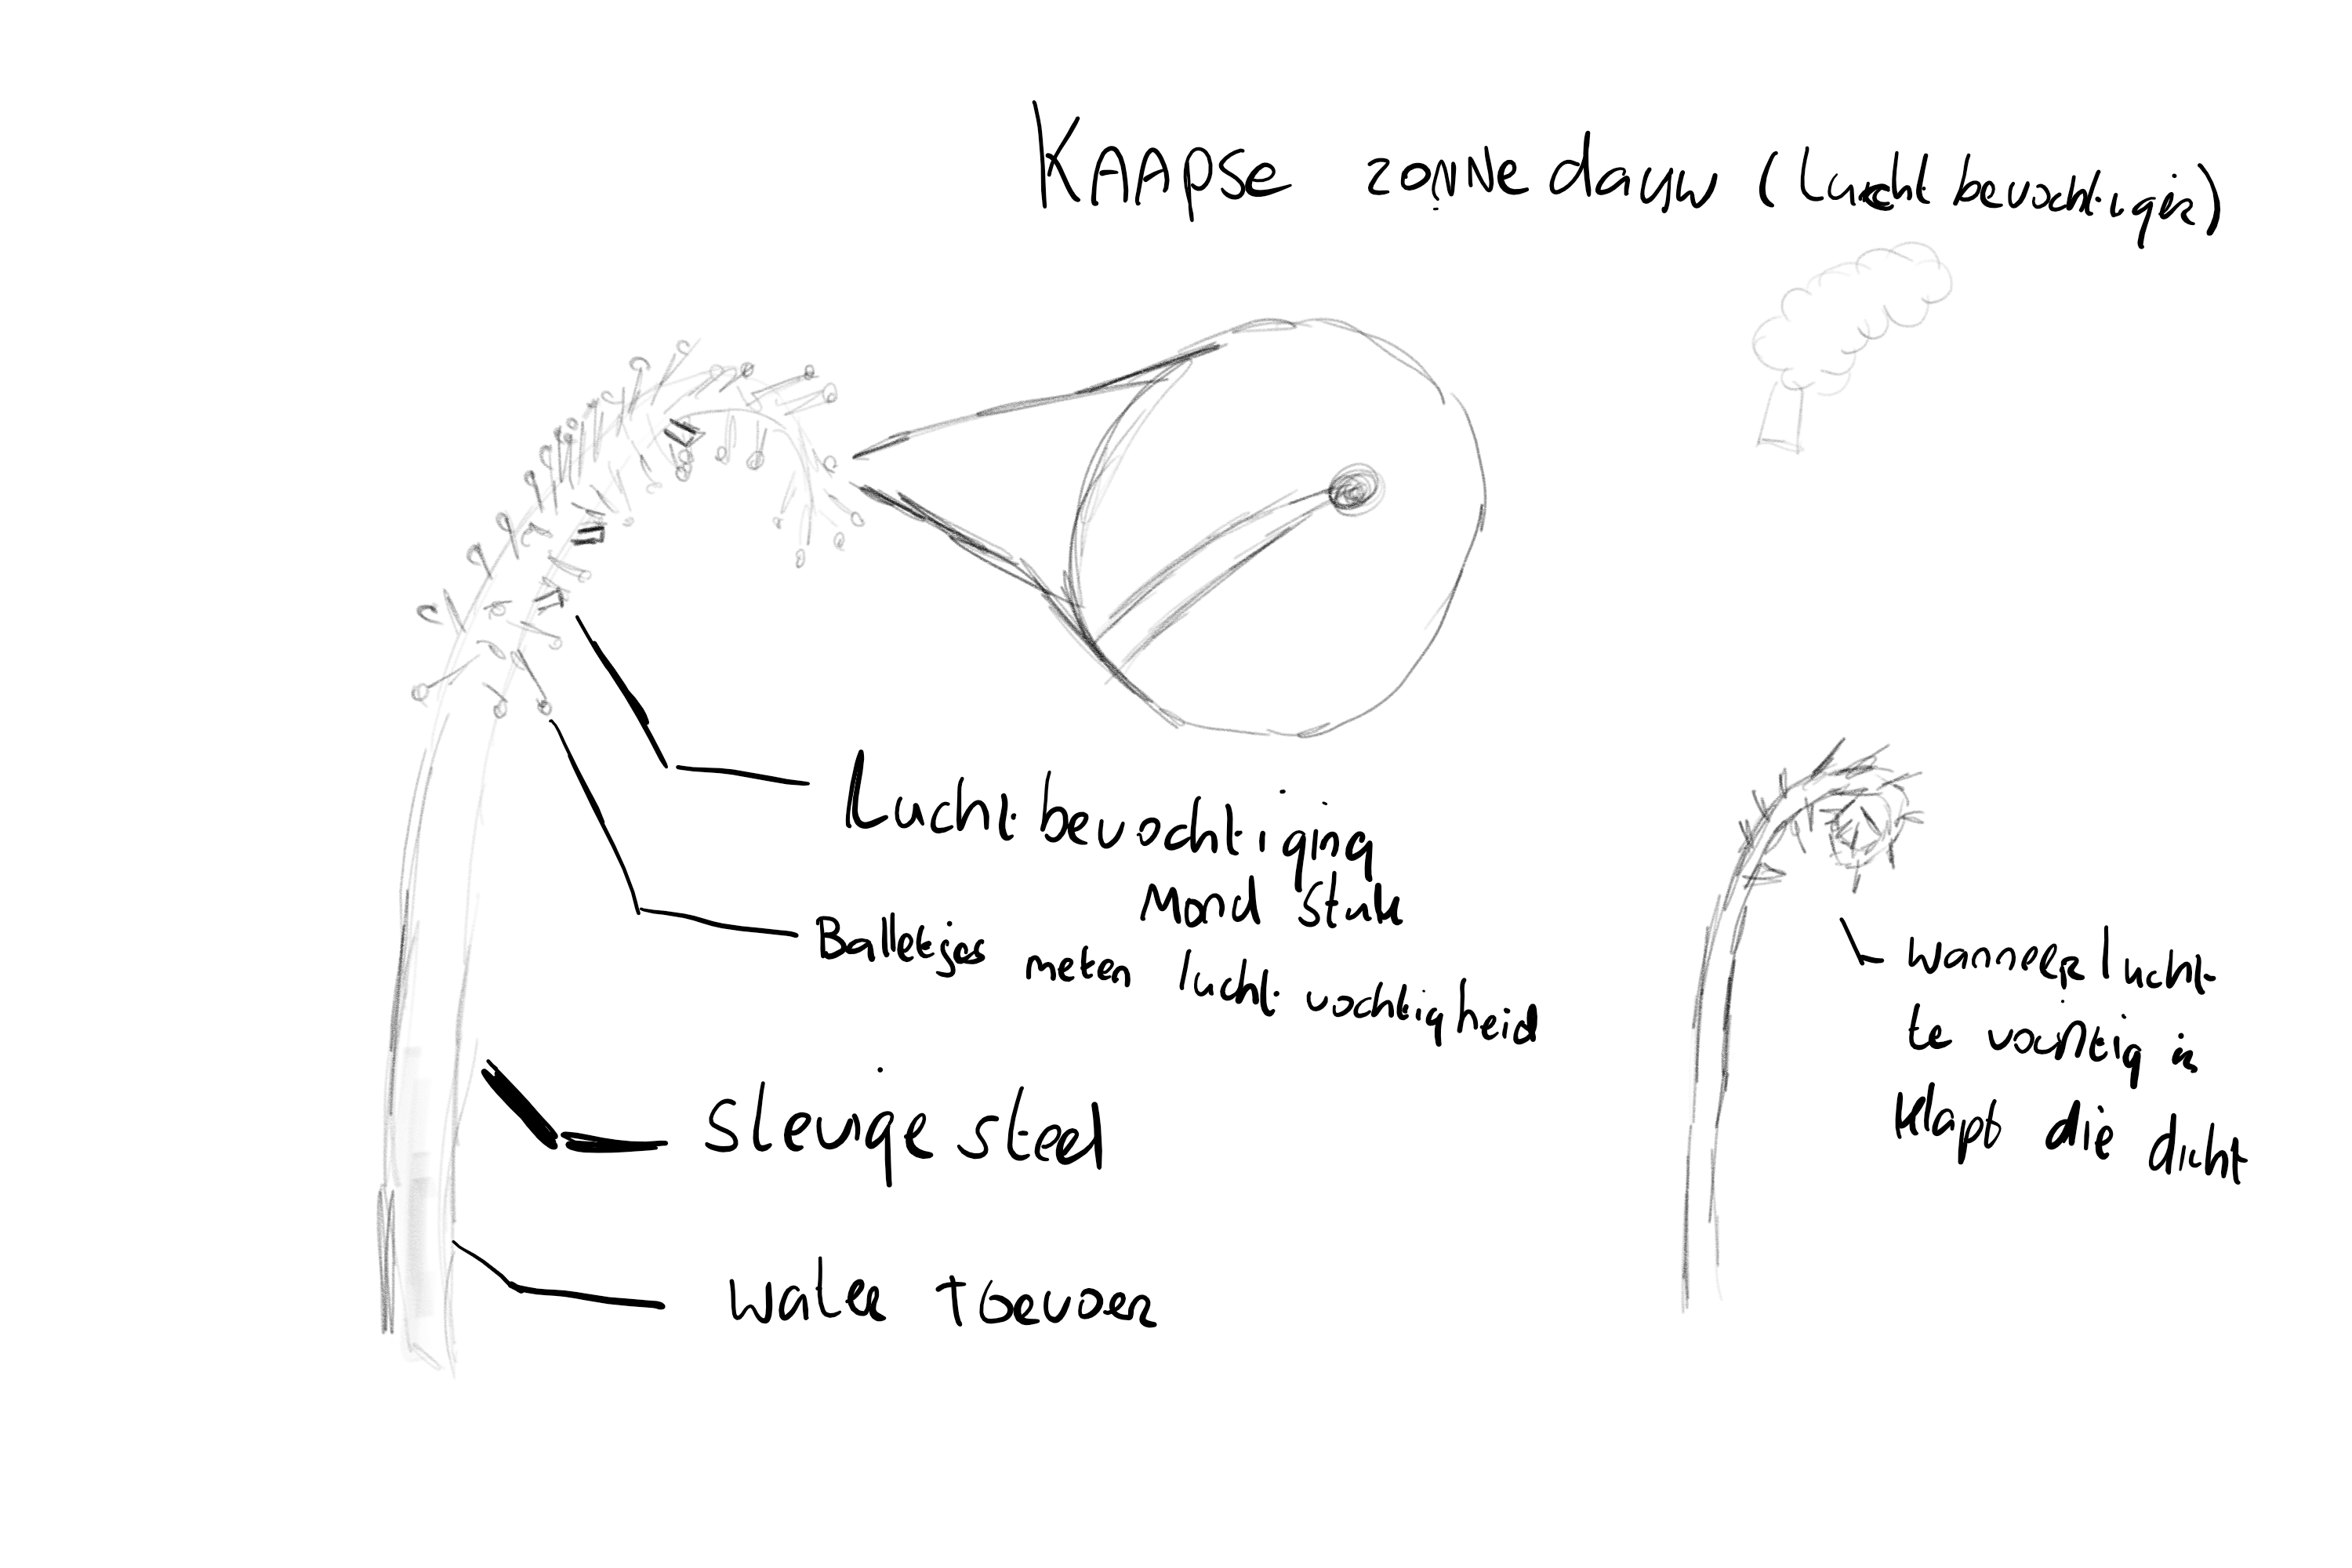 KAAPSe zonne dauw (Lucht bevochtiger)
Lucht bevochtiging
Mond stuk
Balletjes meten lucht vochtigheid
Stevige steel
water toevoer
wanneer lucht
te vochtig is
klapt die dicht